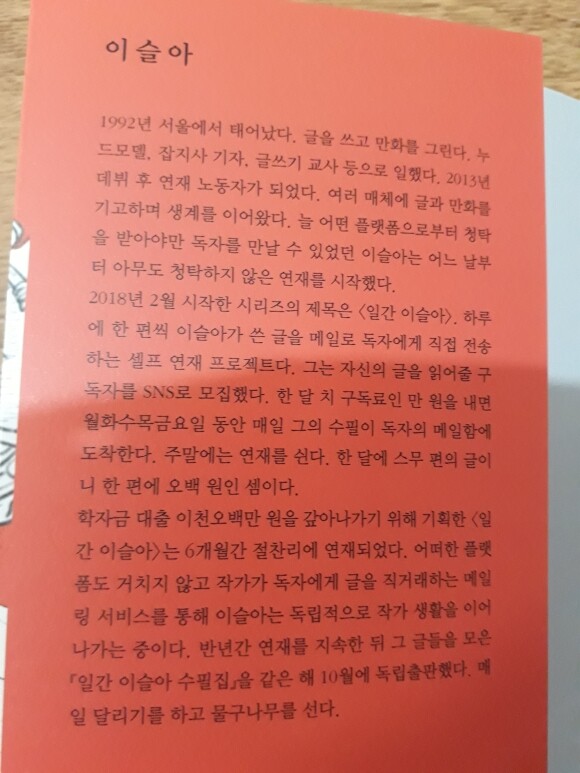 이슬아
1992년 서울에서 태어났다. 글을 쓰고 만화를 그린다. 누
드모델, 잡지사 기자, 글쓰기 교사 등으로 일했다. 2013년
데뷔 후 연재 노동자가 되었다. 여러 매체에 글과 만화를
기고하며 생계를 이어왔다. 늘 어떤 플랫폼으로부터 청탁
을 받아야만 독자를 만날 수 있었던 이슬아는 어느 날부
터 아무도 청탁하지 않은 연재를 시작했다.
2018년 2월 시작한 시리즈의 제목은 〈일간 이슬아〉. 하루
에 한 편씩 이슬아가 쓴 글을 메일로 독자에게 직접 전송
하는 셀프 연재 프로젝트다. 그는 자신의 글을 읽어줄 구
독자를 SNS로 모집했다. 한 달 치 구독료인 만 원을 내면
월화수목금요일 동안 매일 그의 수필이 독자의 메일함에
도착한다. 주말에는 연재를 쉰다. 한 달에 스무 편의 글이
니 한 편에 오백 원인 셈이다.
학자금 대출 이천오백만 원을 갚아나가기 위해 기획한 〈일
간 이슬아〉는 6개월간 절찬리에 연재되었다. 어떠한 플랫
폼도 거치지 않고 작가가 독자에게 글을 직거래하는 메일
링 서비스를 통해 이슬아는 독립적으로 작가 생활을 이어
나가는 중이다. 반년간 연재를 지속한 뒤 그 글들을 모은
『일간 이슬아 수필집』을 같은 해 10월에 독립출판했다. 매
일 달리기를 하고 물구나무를 선다.